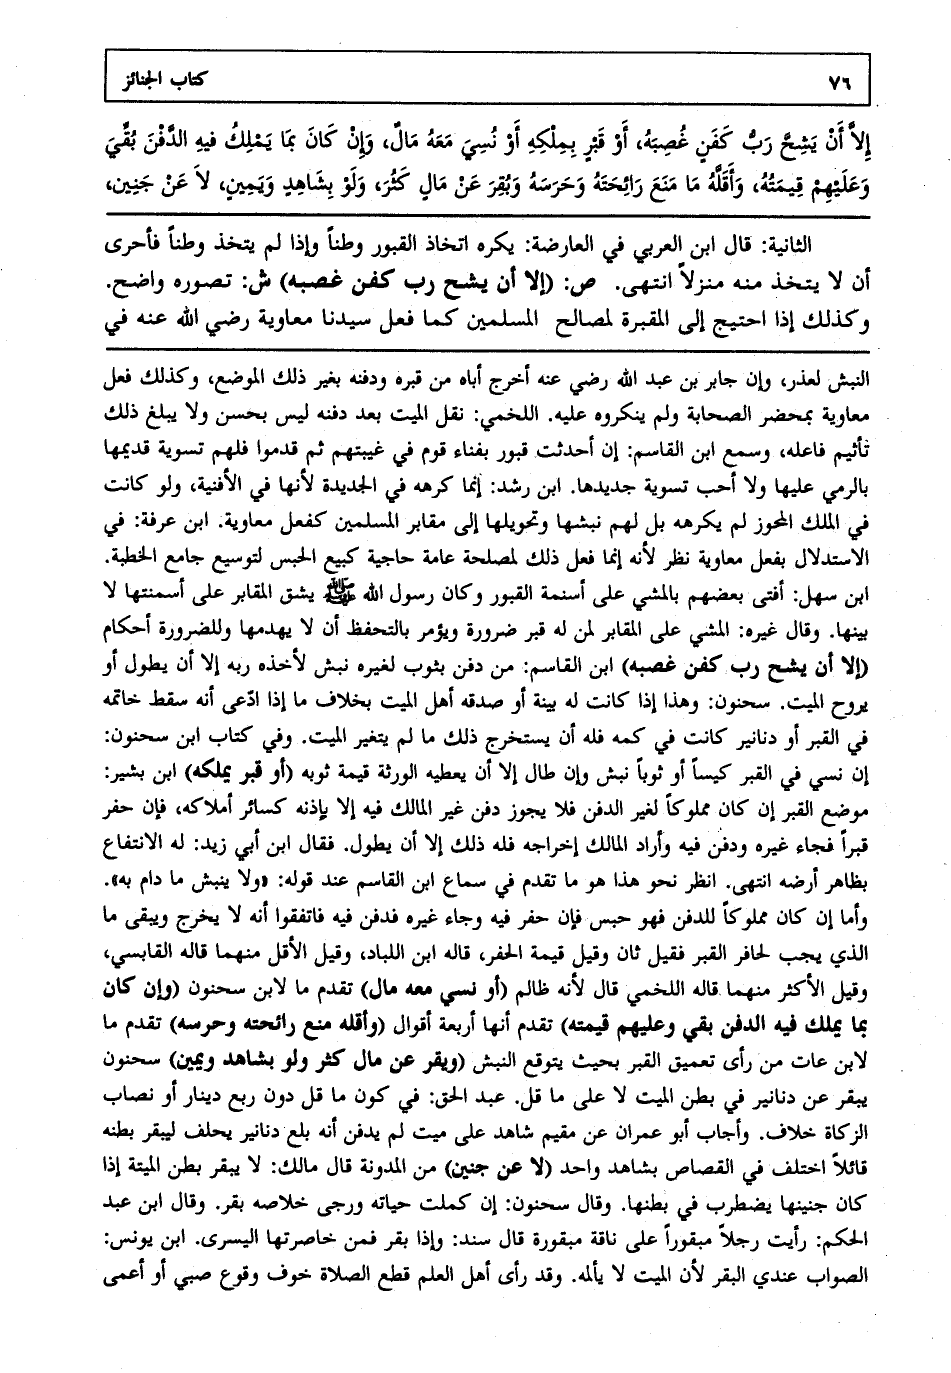 ٧٦ كتاب الجنائز
إِلاَّ أَنْ يَشِحَّ رَبُّ كَفَنٍ غُصِبَهُ، أَوْ قَبْرٍ بِمِلْكِهِ أَوْ نُسِيَ مَعَهُ مَالٌ، وَإِنْ كَانَ بِمَا يَمْلِكُ فيهِ الدَّفْنَ بُقِّيَ
وَعَلَيْهِمْ قِيمَتُهُ، وَأَقَلُّهُ مَا مَنَعَ رَائِحَتَهُ وَحَرَسَهُ وَبُقِرَ عَنْ مَالٍ كَثُرَ، وَلَوْ بِشَاهِدٍ وَيَمِينٍ، لاَ عَنْ جَنِينٍ،
الثانية: قال ابن العربي في العارضة: يكره اتخاذ القبور وطناً وإذا لم يتخذ وطناً فأحرى
أن لا يتخذ منه منزلاً انتهى. ص: (إلا أن يشح رب كفن غصبه) ش: تصوره واضح.
وكذلك إذا احتيج إلى المقبرة لمصالح المسلمين كما فعل سيدنا معاوية رضي الله عنه في
النبش لعذر، وإن جابر بن عبد الله رضي عنه أخرج أباه من قبره ودفنه بغير ذلك الموضع، وكذلك فعل
معاوية بمحضر الصحابة ولم ينكروه عليه. اللخمي: نقل الميت بعد دفنه ليس بحسن ولا يبلغ ذلك
تأثيم فاعله، وسمع ابن القاسم: إن أحدثت قبور بفناء قوم في غيبتهم ثم قدموا فلهم تسوية قديمها
بالرمي عليها ولا أحب تسوية جديدها. ابن رشد: إنما كرهه في الجديدة لأنها في الأفنية، ولو كانت
في الملك المحوز لم يكرهه بل لهم نبشها وتحويلها إلى مقابر المسلمين كفعل معاوية. ابن عرفة: في
الاستدلال بفعل معاوية نظر لأنه إنما فعل ذلك لمصلحة عامة حاجية كبيع الحبس لتوسيع جامع الخطبة.
ابن سهل: أفتى بعضهم بالمشي على أسنمة القبور وكان رسول الله ﷺ يشق المقابر على أسمنتها لا
بينها. وقال غيره: المشي على المقابر لمن له قبر ضرورة ويؤمر بالتحفظ أن لا يهدمها وللضرورة أحكام
(إلا أن يشح رب كفن غصبه) ابن القاسم: من دفن بثوب لغيره نبش لأخذه ربه إلا أن يطول أو
يروح الميت. سحنون: وهذا إذا كانت له بينة أو صدقه أهل الميت بخلاف ما إذا ادّعى أنه سقط خاتمه
في القبر أو دنانير كانت في كمه فله أن يستخرج ذلك ما لم يتغير الميت. وفي كتاب ابن سحنون:
إن نسي في القبر كيساً أو ثوباً نبش وإن طال إلا أن يعطيه الورثة قيمة ثوبه (أو قبر بملكه) ابن بشير:
موضع القبر إن كان مملوكاً لغير الدفن فلا يجوز دفن غير المالك فيه إلا بإذنه كسائر أملاكه، فإن حفر
قبراً فجاء غيره ودفن فيه وأراد المالك إخراجه فله ذلك إلا أن يطول. فقال ابن أبي زيد: له الانتفاع
بظاهر أرضه انتهى. انظر نحو هذا هو ما تقدم في سماع ابن القاسم عند قوله: «ولا ينبش ما دام به».
وأما إن كان مملوكاً للدفن فهو حبس فإن حفر فيه وجاء غيره فدفن فيه فاتفقوا أنه لا يخرج ويبقى ما
الذي يجب لحافر القبر فقيل ثان وقيل قيمة الحفر، قاله ابن اللباد، وقيل الأقل منهما قاله القابسي،
وقيل الأكثر منهما قاله اللخمي قال لأنه ظالم (أو نسي معه مال) تقدم ما لابن سحنون (وإن كان
بما يملك فيه الدفن بقي وعليهم قيمته) تقدم أنها أربعة أقوال (وأقله منع رائحته وحرسه) تقدم ما
لابن عات من رأى تعميق القبر بحيث يتوقع النبش (وبقر عن مال كثر ولو بشاهد ويمين) سحنون
يبقر عن دنانير في بطن الميت لا على ما قل. عبد الحق: في كون ما قل دون ربع دينار أو نصاب
الزكاة خلاف. وأجاب أبو عمران عن مقيم شاهد على ميت لم يدفن أنه بلع دنانير يحلف ليبقر بطنه
قائلاً اختلف في القصاص بشاهد واحد (لا عن جنين) من المدونة قال مالك: لا يبقر بطن الميتة إذا
كان جنينها يضطرب في بطنها. وقال سحنون: إن كملت حياته ورجى خلاصه بقر. وقال ابن عبد
الحكم: رأيت رجلاً مبقوراً على ناقة مبقورة قال سند: وإذا بقر فمن خاصرتها اليسرى. ابن يونس:
الصواب عندي البقر لأن الميت لا يألمه. وقد رأى أهل العلم قطع الصلاة خوف وقوع صبي أو أعمى